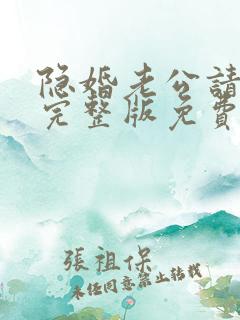 隐婚老公請
完整版免費
張祖保
未经同意禁止转载